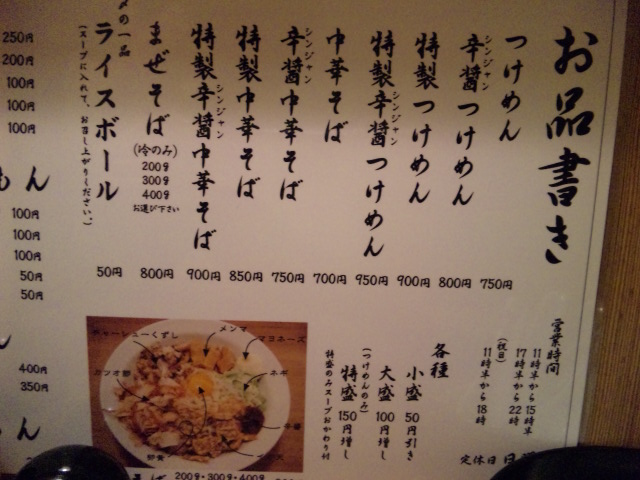 お品書き
つけめん 750円
辛醤つけめん 800円
シンジャン
特製つけめん 900円
特製辛醤つけめん 950円
シンジャン
中華そば 700円
辛醤中華そば 750円
シンジャン
特製中華そば 850円
特製辛醤中華そば 900円
シンジャン
まぜそば 800円
(冷のみ)
200g
300g
400g
お選び下さい
〆の一品
ライスボール 50円
(スープに入れて、お召し上がりください。)
250円
200円
100円
100円
100円
ん
100円
100円
100円
50円
50円
400円
350円
ん
営業時間
11時半から15時半
17時半から22時
(祝日)
11時半から18時
定休日
各種
小盛 50円引き
大盛 100円増し
(つけめんのみ)
特盛 150円増し
特盛のみスープおかわり付
チャーシューくずし
メンマ
マヨネーズ
カツオ節
ネギ
辛醤
野菜
200g・300g・400g